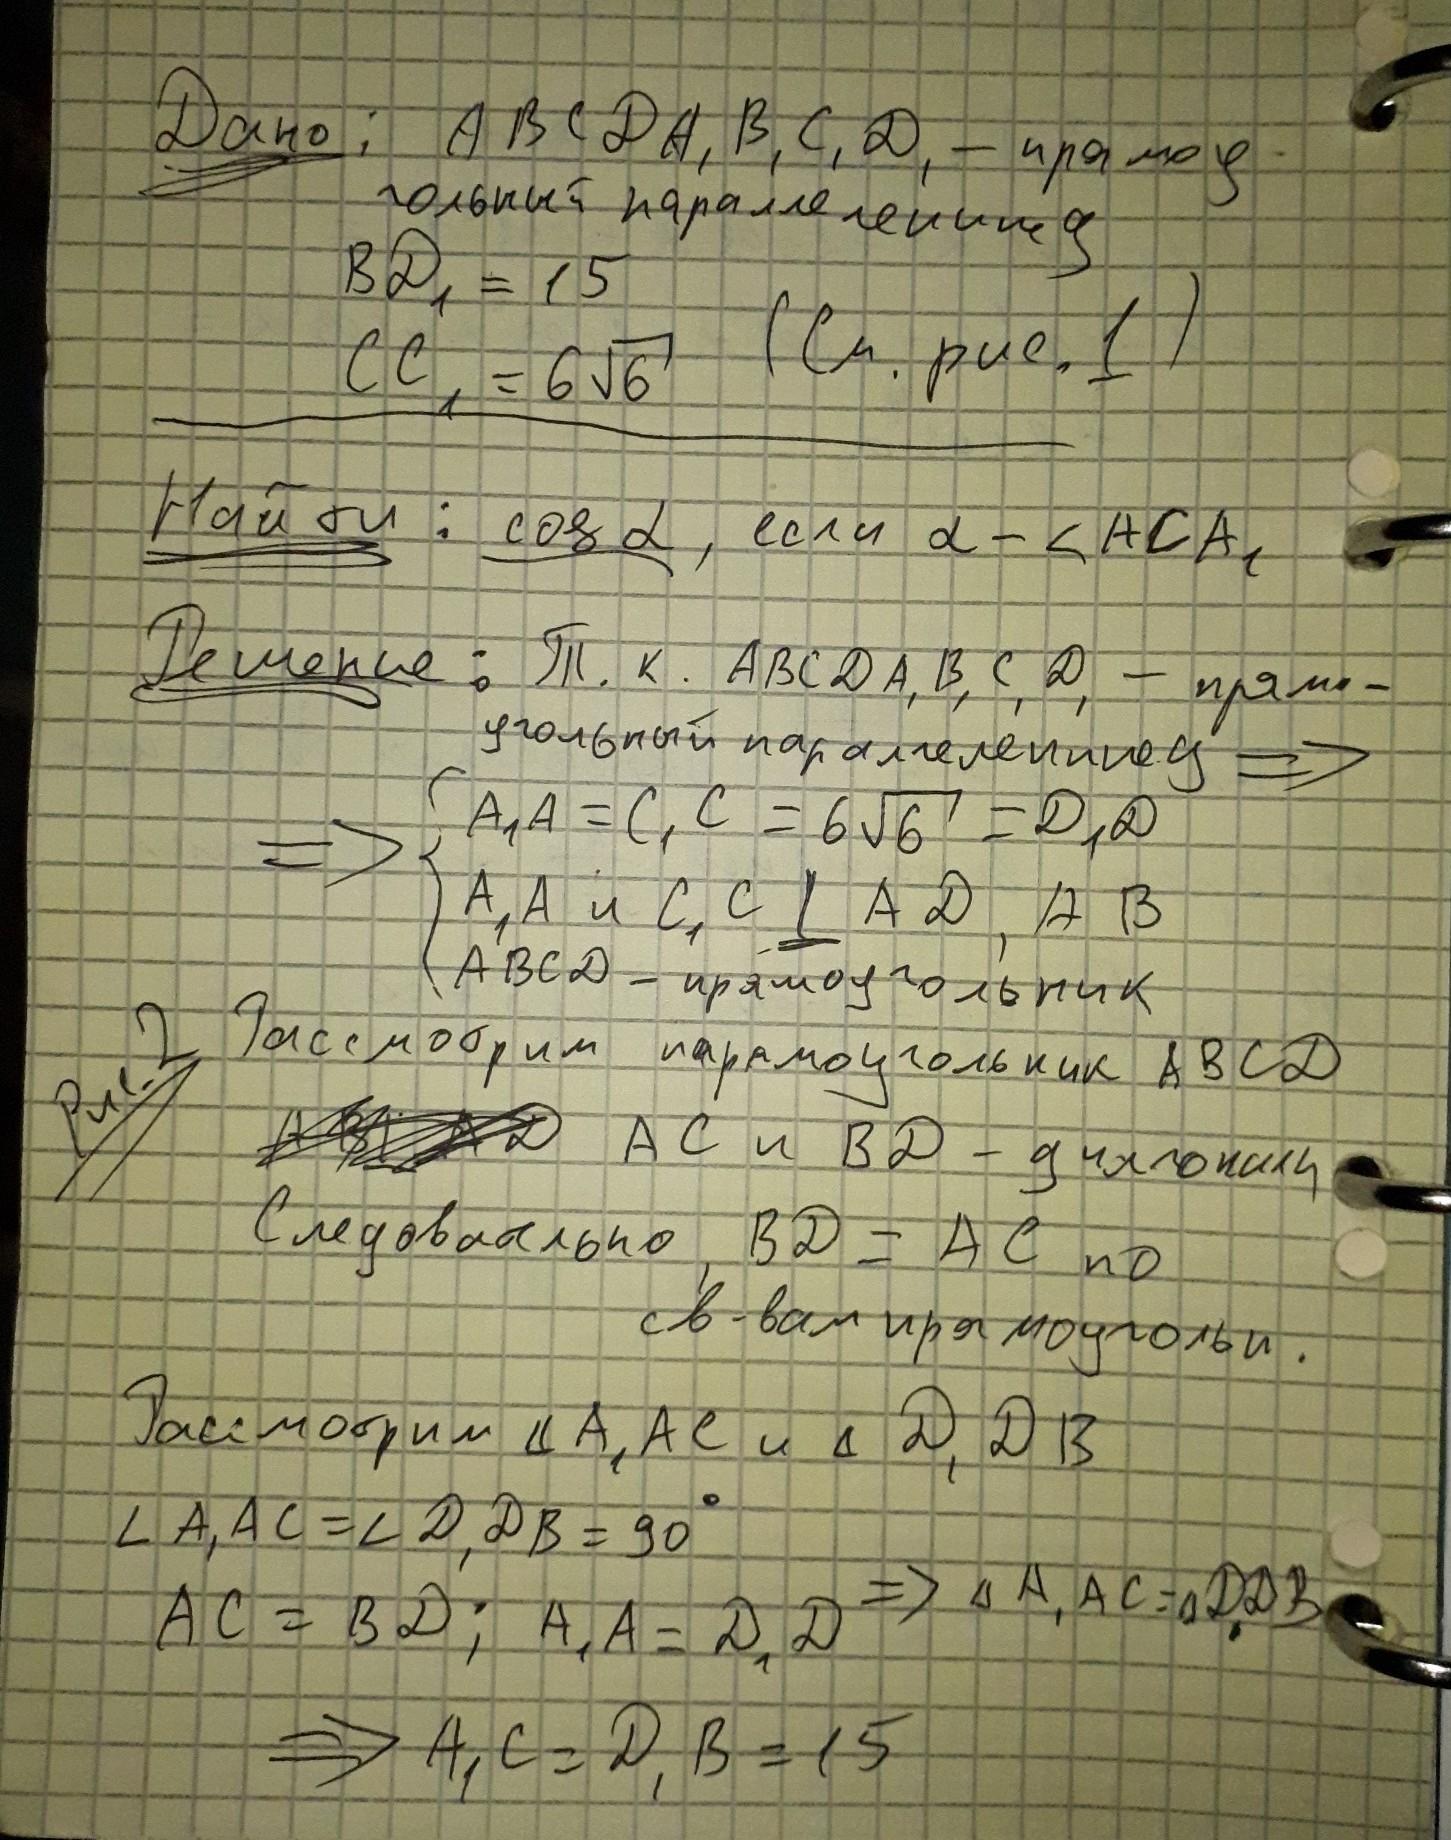 Дано: ABCDA₁B₁C₁D₁ – прямоу
гольный параллелепипед
BD₁ = 15
CC₁ = 6√6 (См. рис. 1)
Найти: cos α, если α – ∠ACA₁
Решение: Т. к. ABCDA₁B₁C₁D₁ – прямо-
угольный параллелепипед =>
=> { A₁A = C₁C = 6√6 = D₁D
A₁A и C₁C ⊥ AD, AB
ABCD – прямоугольник
Рис. 2 Рассмотрим парямоугольник ABCD
AC и BD – диагонали
Следовательно, BD = AC по
св-вам прямоугольн.
Рассмотрим △A₁AC и △D₁DB
∠A₁AC = ∠D₁DB = 90°
AC = BD; A₁A = D₁D => △A₁AC = △D₁DB
=> A₁C = D₁B = 15